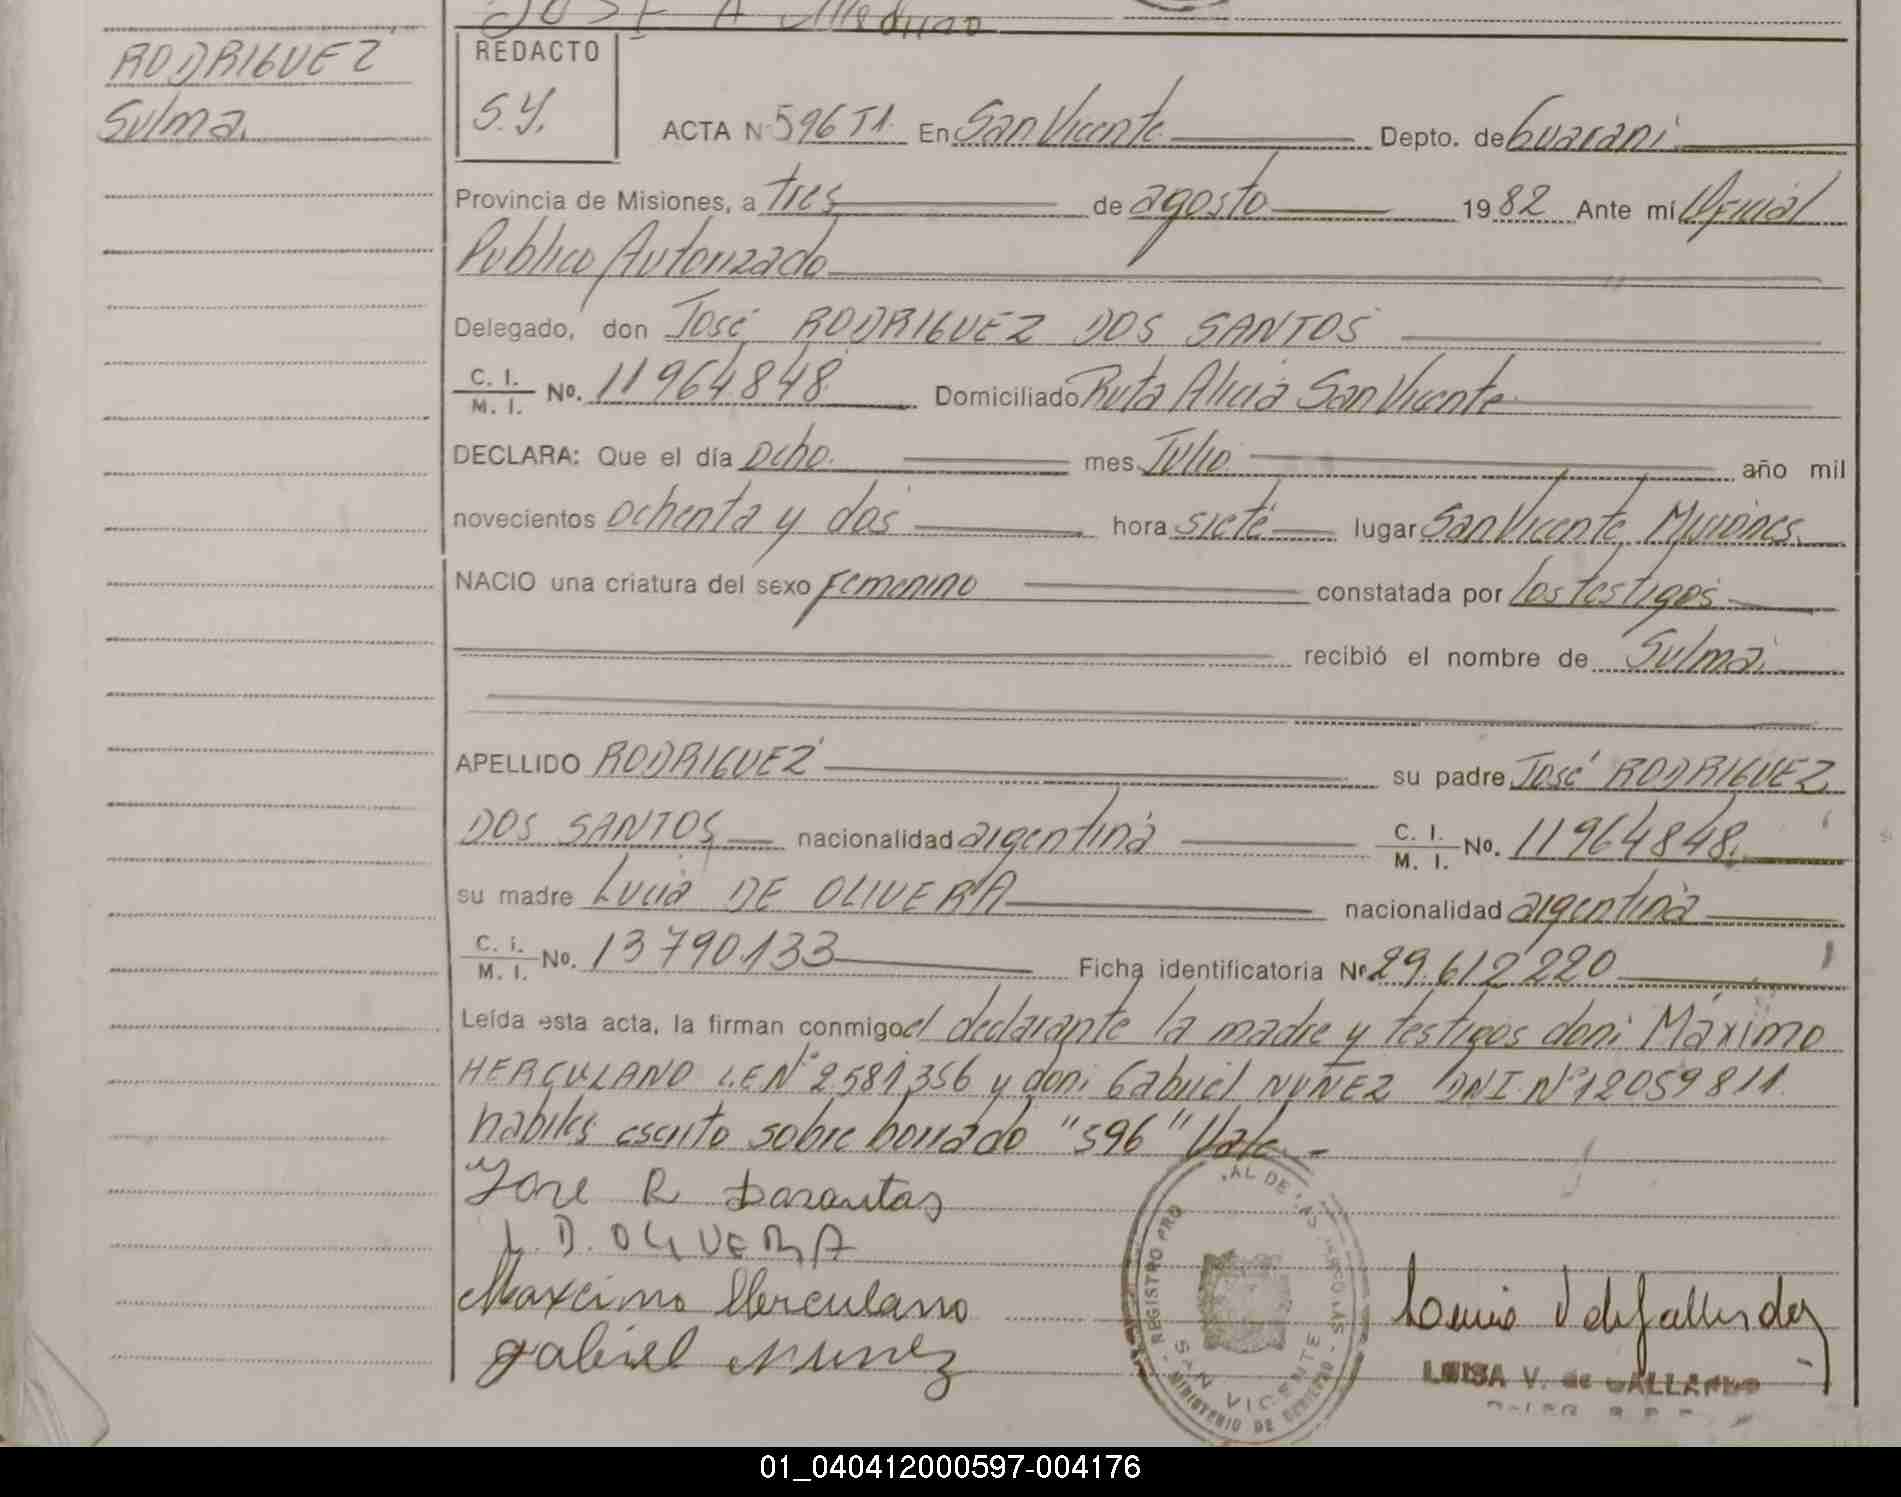 José A Medina
RODRIGUEZ
Sulma.
REDACTO
S.Y.
ACTA Nº 596 T1. En San Vicente Depto. de Guaraní
Provincia de Misiones, a tres de agosto 1982 Ante mí Oficial
Publico Autorizado
Delegado, don José RODRIGUEZ DOS SANTOS
C. I. / M. I. No. 11964848 Domiciliado Ruta Alicia San Vicente
DECLARA: Que el día ocho. mes Julio año mil
novecientos ochenta y dos hora siete lugar San Vicente, Misiones.
NACIO una criatura del sexo femenino constatada por los testigos
recibió el nombre de Sulma.
APELLIDO RODRIGUEZ su padre José RODRIGUEZ
DOS SANTOS nacionalidad argentina C. I. / M. I. No. 11964848.
su madre Lucia DE OLIVERA nacionalidad argentina
C. I. / M. I. No. 13790133 Ficha identificatoria Nº 29.612.220
Leída esta acta, la firman conmigo el declarante la madre y testigos don: Máximo
HERCULANO L.E Nº 2581356 y don: Gabriel NUÑEZ DNI. Nº 12059811.
habiles escrito sobre borrado "596" Vale.-
Jose R Dosantos
L. D. OLIVERA
Maxcimo Herculano
gabriel nunez
REGISTRO PRO AL DE LAS PERSONAS - MINISTERIO DE GOBIERNO -
SAN VICENTE
LUISA V. de GALLARDO
01_040412000597-004176